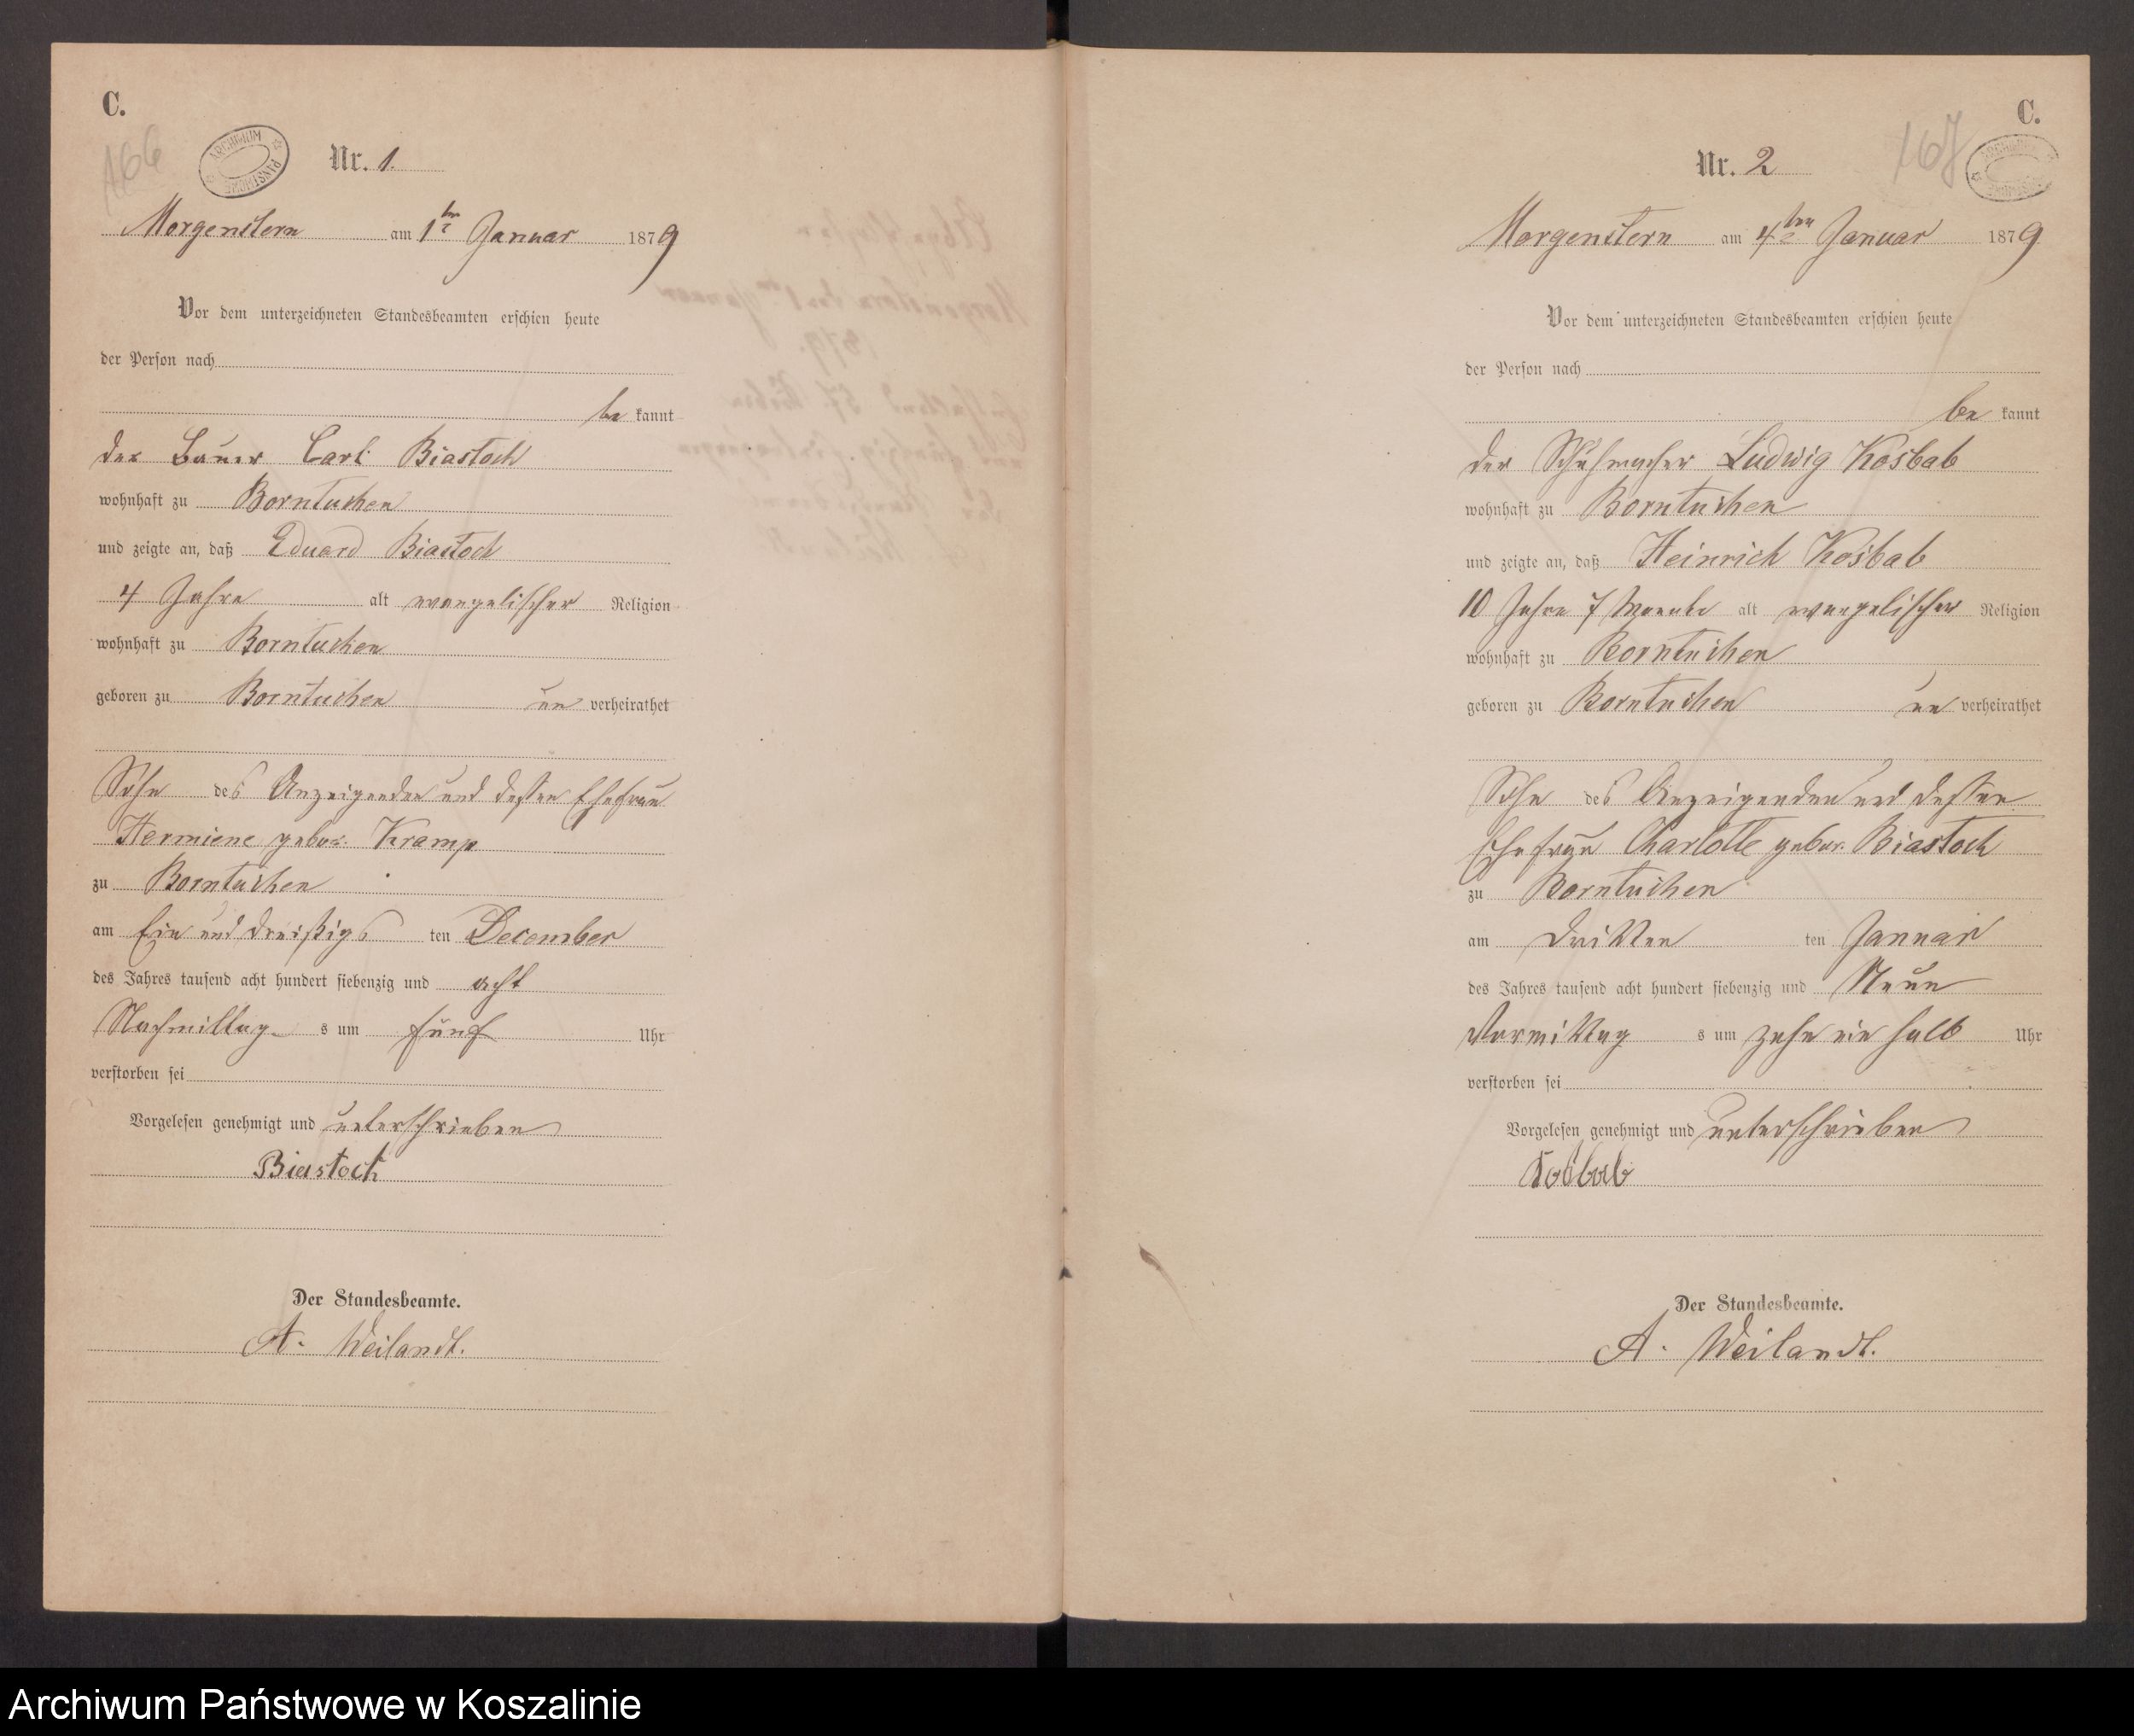 C.
166
ARCHIWUM PAŃSTWOWE
Nr. 1.
Morgenstern am 1ten Januar 1879
Vor dem unterzeichneten Standesbeamten erschien heute
der Person nach
be kannt
der Bauer Carl Biastoch
wohnhaft zu Borntuchen
und zeigte an, daß Eduard Biastoch
4 Jahre alt evangelischer Religion
wohnhaft zu Borntuchen
geboren zu Borntuchen un verheirathet
Sohn des Anzeigenden und dessen Ehefrau
Hermiene gebor. Kramp
zu Borntuchen
am Ein und dreißigs ten December
des Jahres tausend acht hundert siebenzig und acht
Nachmittag s um fünf Uhr
verstorben sei
Vorgelesen genehmigt und unterschrieben
Biastoch
Der Standesbeamte.
A. Weilandt.
C.
167
Nr. 2
Morgenstern am 4ten Januar 1879
Vor dem unterzeichneten Standesbeamten erschien heute
der Person nach
be kannt
der Schuhmacher Ludwig Kosbab
wohnhaft zu Borntuchen
und zeigte an, daß Heinrich Kosbab
10 Jahre 7 Monate alt evangelischer Religion
wohnhaft zu Borntuchen
geboren zu Borntuchen un verheirathet
Sohn des Anzeigenden und dessen
Ehefrau Charlotte gebor. Biastoch
zu Borntuchen
am Dritten ten Januar
des Jahres tausend acht hundert siebenzig und Neun
Vormittag s um zehn ein halb Uhr
verstorben sei
Vorgelesen genehmigt und unterschrieben
Kosbab
Der Standesbeamte.
A. Weilandt.
Archiwum Państwowe w Koszalinie